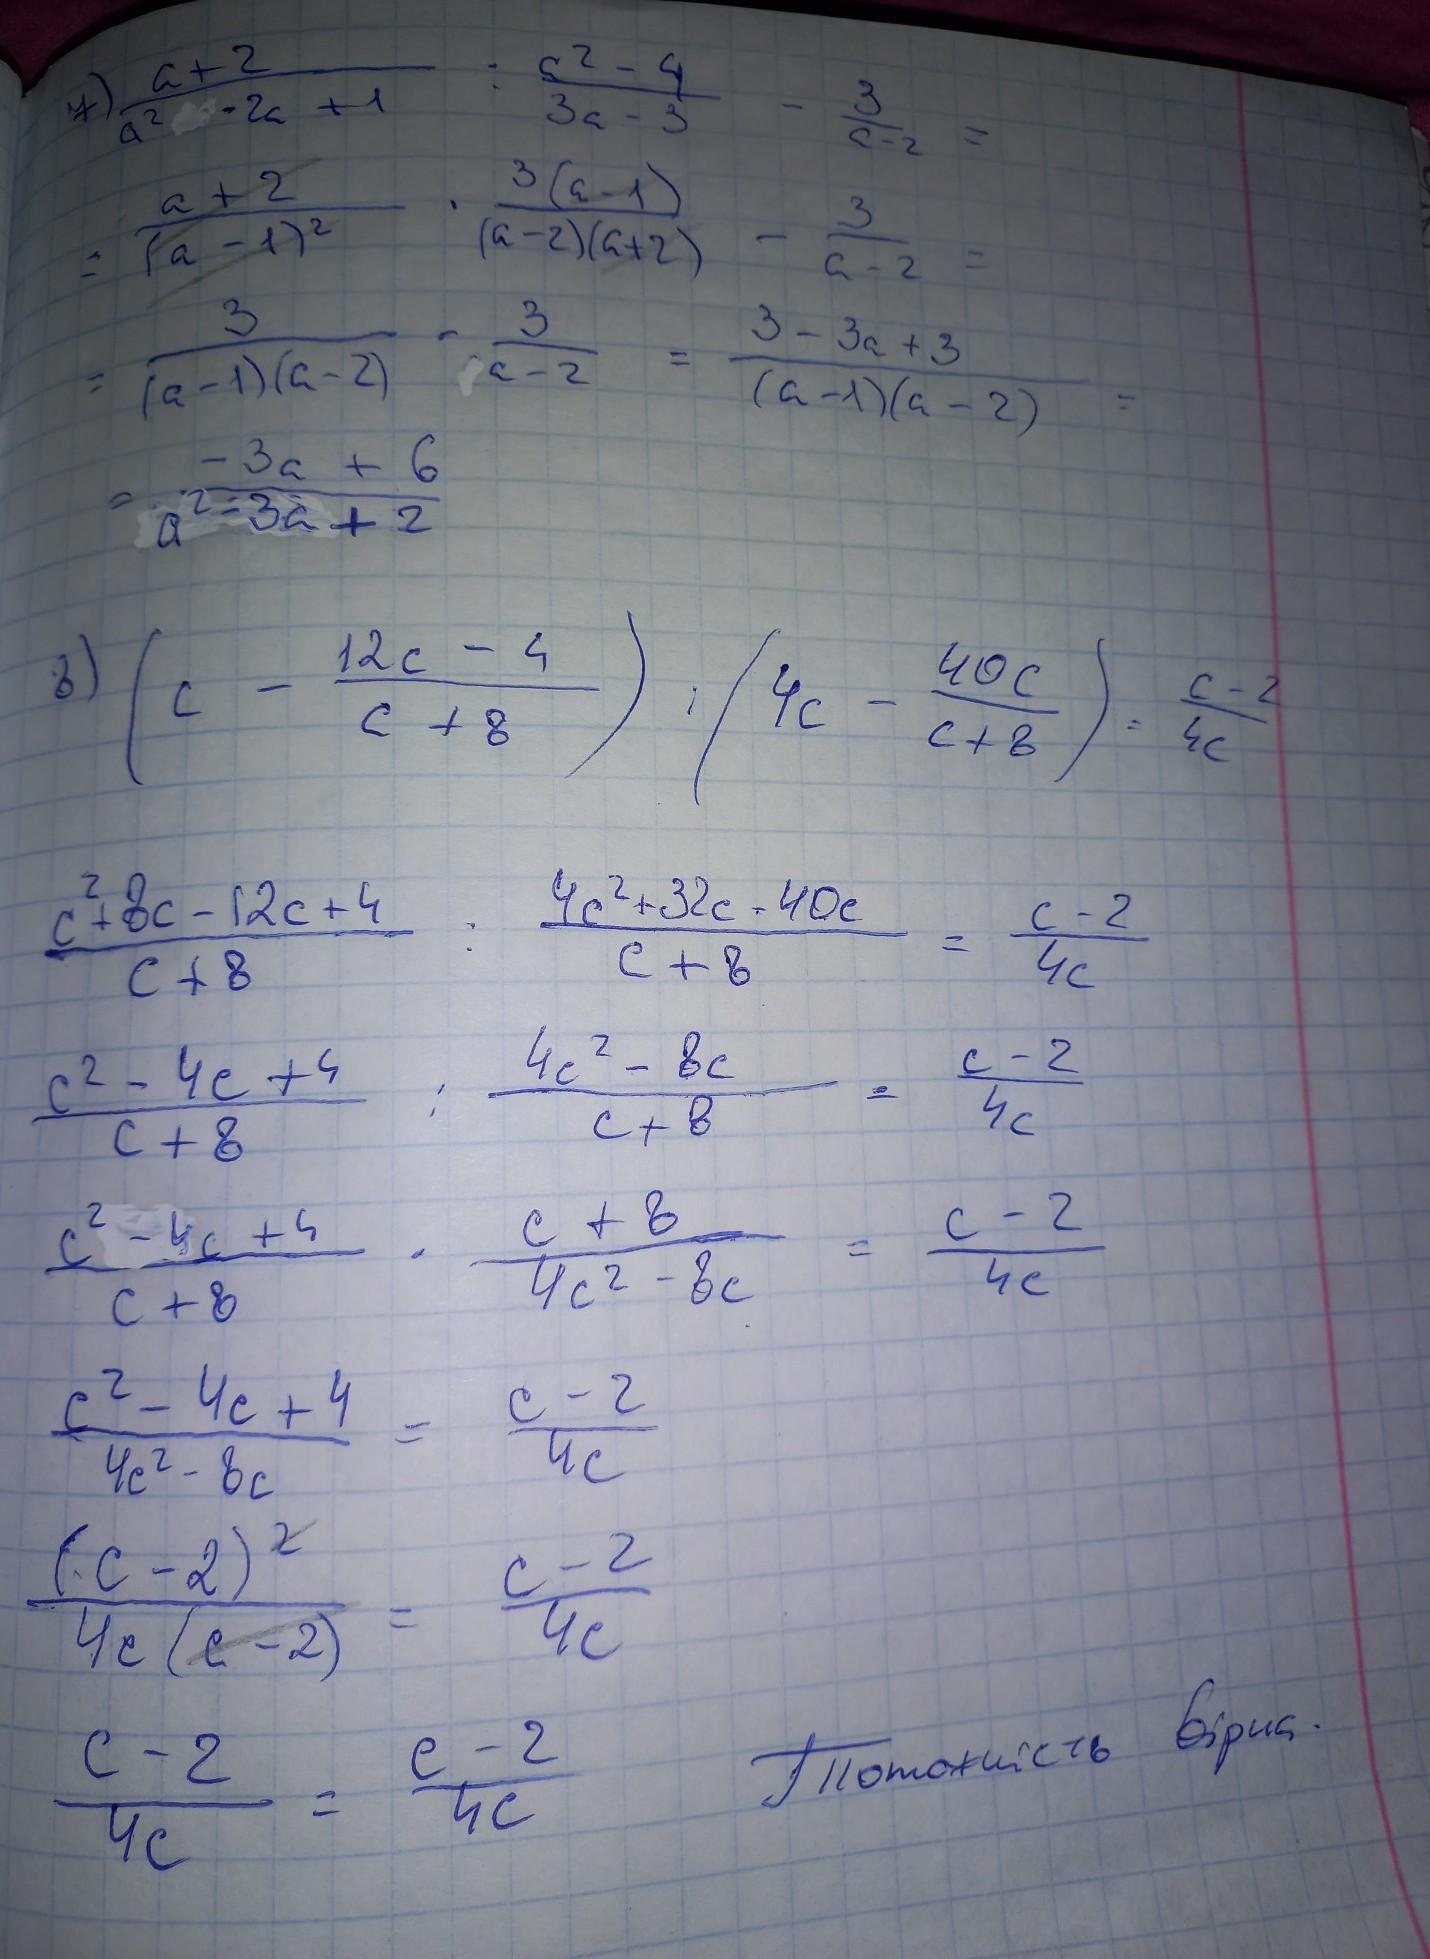 7) (a+2)/(a² -2a +1) : (a² - 4)/(3a - 3) - 3/(a-2) =
= (a+2)/(a-1)² · 3(a-1)/((a-2)(a+2)) - 3/(a-2) =
= 3/((a-1)(a-2)) - 3/(a-2) = (3-3a+3)/((a-1)(a-2)) =
= (-3a+6)/(a²-3a+2)
8) (c - (12c-4)/(c+8)) : (4c - 40c/(c+8)) = (c-2)/4c
(c²+8c-12c+4)/(c+8) : (4c²+32c-40c)/(c+8) = (c-2)/4c
(c²-4c+4)/(c+8) : (4c²-8c)/(c+8) = (c-2)/4c
(c²-4c+4)/(c+8) · (c+8)/(4c²-8c) = (c-2)/4c
(c²-4c+4)/(4c²-8c) = (c-2)/4c
(c-2)²/(4c(c-2)) = (c-2)/4c
(c-2)/4c = (c-2)/4c Тотожність вірна.